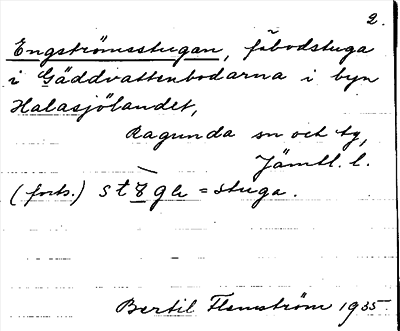 2.
Engströmsstugan, fäbodstuga
i Gäddvattenbodarna i byn
Halasjölandet,
Ragunda sn och tg,
Jämtl. l.
(forts.) = stuga.
Bertil Flemström 1935